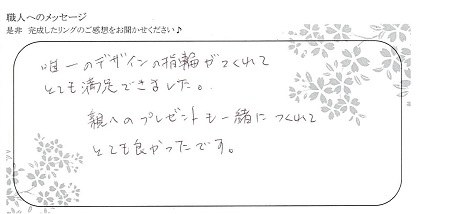 職人へのメッセージ
是非 完成したリングのご感想をお聞かせください♪
唯一のデザインの指輪がつくれて
とても満足できました。
親へのプレゼントも一緒につくれて
とても良かったです。